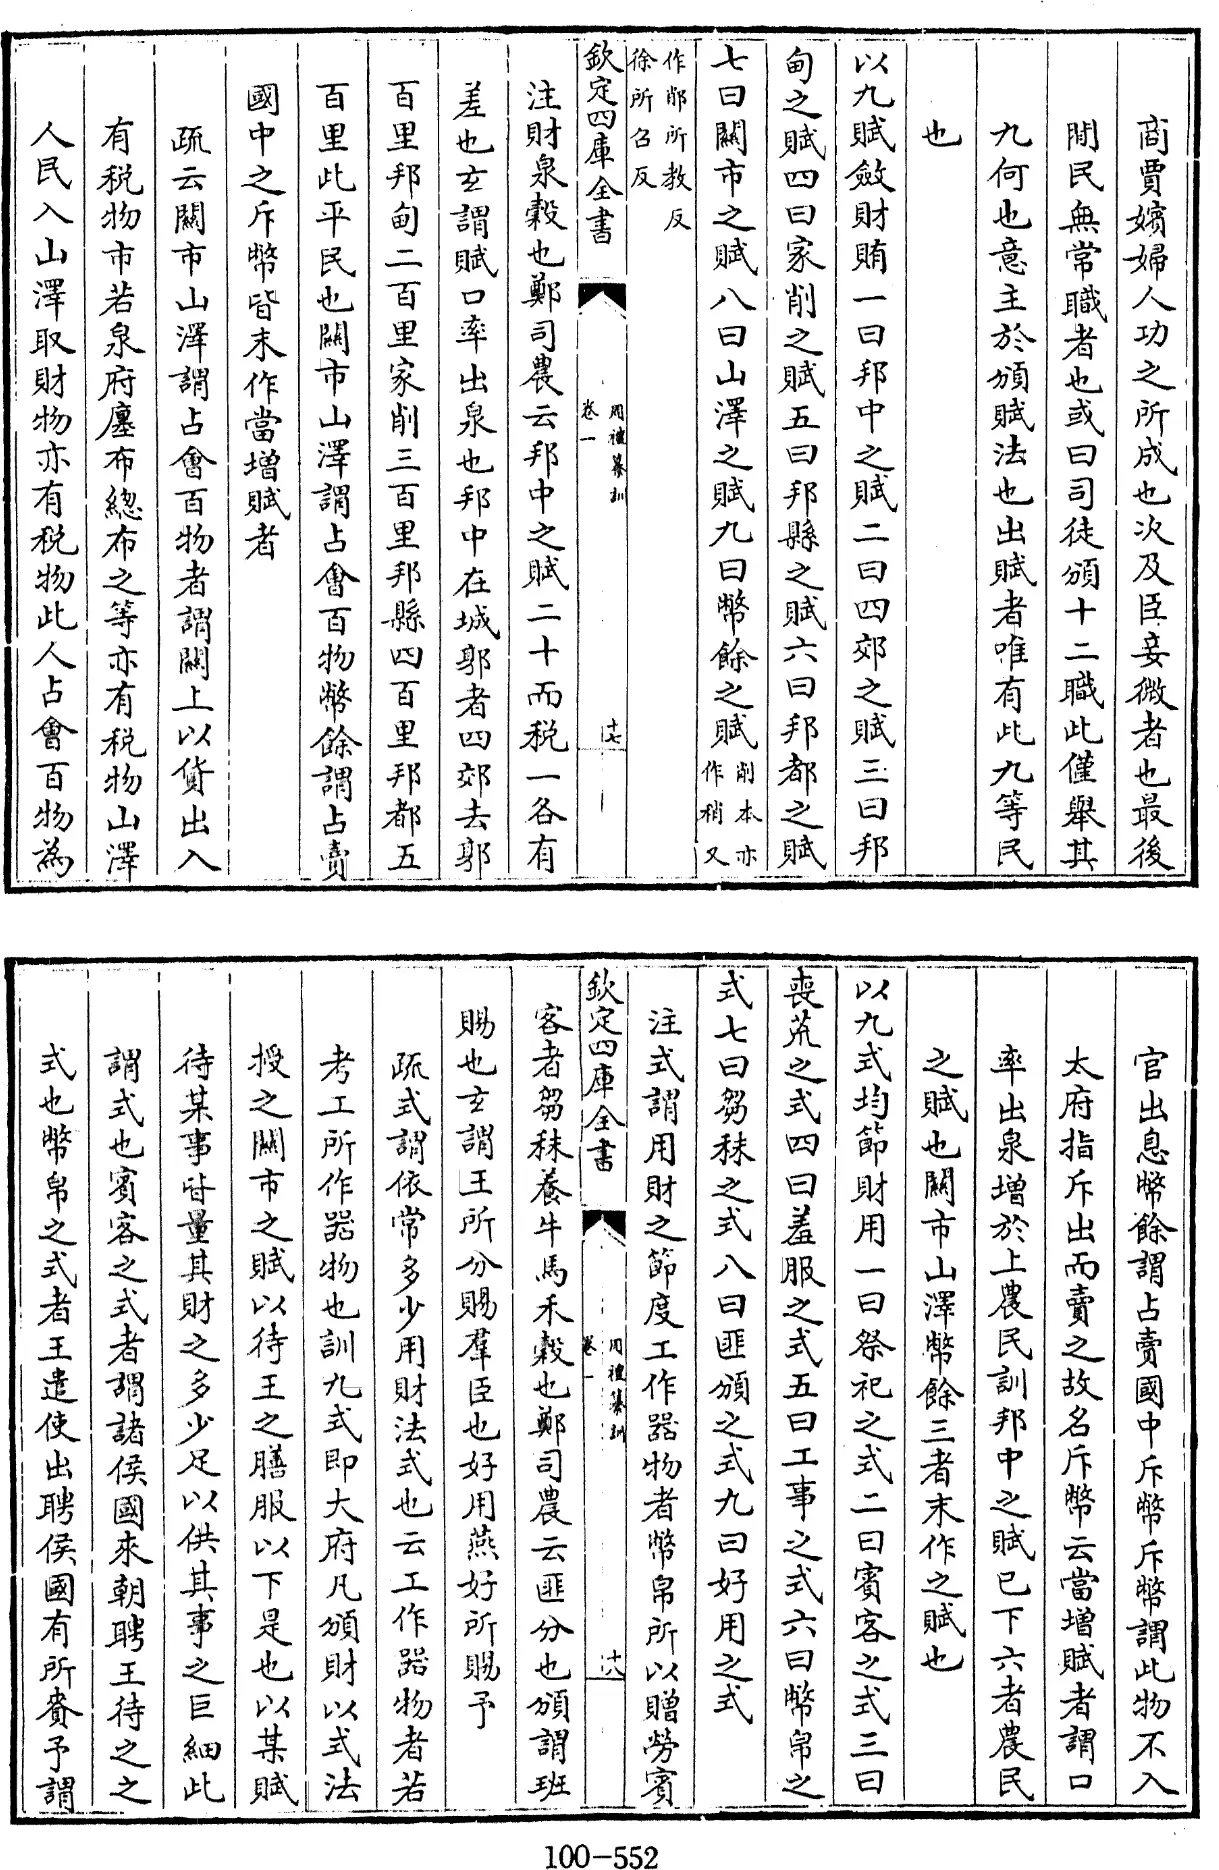 商賈嬪婦人功之所成也次及臣妾微者也最後
閒民無常職者也或曰司徒頒十二職此僅舉其
九何也意主於頒賦法也出賦者唯有此九等民
也
以九賦斂財賄一曰邦中之賦二曰四郊之賦三曰邦
甸之賦四曰家削之賦五曰邦縣之賦六曰邦都之賦
七曰關市之賦八曰山澤之賦九曰幣餘之賦削本亦作稍又
作鄁所教反徐所召反
欽定四庫全書
周禮纂訓
卷一
十七
注財泉穀也鄭司農云邦中之賦二十而稅一各有
差也玄謂賦口率出泉也邦中在城郭者四郊去郭
百里邦甸二百里家削三百里邦縣四百里邦都五
百里此平民也關市山澤謂占會百物幣餘謂占賣
國中之斥幣皆末作當增賦者
疏云關市山澤謂占會百物者謂關上以貨出入
有稅物市若泉府廛布總布之等亦有稅物山澤
人民入山澤取財物亦有稅物此人占會百物為
官出息幣餘謂占賣國中斥幣斥幣謂此物不入
太府指斥出而賣之故名斥幣云當增賦者謂口
率出泉增於上農民訓邦中之賦已下六者農民
之賦也關市山澤幣餘三者末作之賦也
以九式均節財用一曰祭祀之式二曰賓客之式三曰
喪荒之式四曰羞服之式五曰工事之式六曰幣帛之
式七曰芻秣之式八曰匪頒之式九曰好用之式
注式謂用財之節度工作器物者幣帛所以贈勞賓
欽定四庫全書
周禮纂訓
卷一
十八
客者芻秣養牛馬禾穀也鄭司農云匪分也頒謂班
賜也玄謂王所分賜羣臣也好用燕好所賜予
疏式謂依常多少用財法式也云工作器物者若
考工所作器物也訓九式即大府凡頒財以式法
授之關市之賦以待王之膳服以下是也以某賦
待某事皆量其財之多少足以供其事之巨細此
謂式也賓客之式者謂諸侯國來朝聘王待之之
式也幣帛之式者王遣使出聘侯國有所賫予謂
100-552